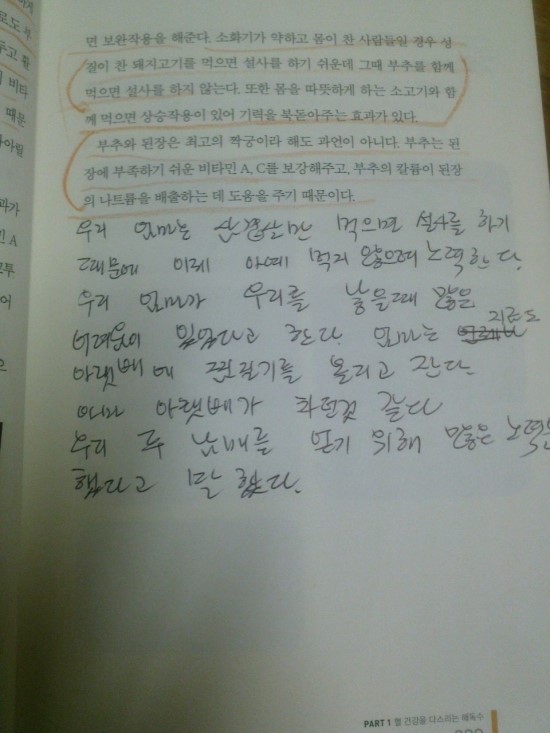 면 보완작용을 해준다. 소화기가 약하고 몸이 찬 사람들일 경우 성
질이 찬 돼지고기를 먹으면 설사를 하기 쉬운데 그때 부추를 함께
먹으면 설사를 하지 않는다. 또한 몸을 따뜻하게 하는 소고기와 함
께 먹으면 상승작용이 있어 기력을 북돋아주는 효과가 있다.
부추와 된장은 최고의 짝궁이라 해도 과언이 아니다. 부추는 된
장에 부족하기 쉬운 비타민 A, C를 보강해주고, 부추의 칼륨이 된장
의 나트륨을 배출하는 데 도움을 주기 때문이다.
우리 엄마는 삼겹살만 먹으면 설사를 하기
때문에 이제 아예 먹지 않으려 노력한다.
우리 엄마가 우리를 낳을때 많은
어려움이 있었다고 한다. 엄마는 지금도
아랫배에 전기를 올리고 잔다.
아마 아랫배가 차던것 같다
우리 두 남매를 얻기 위해 많은 노력을
했다고 말 했다.
PART 1 혈 건강을 다스리는 해독수